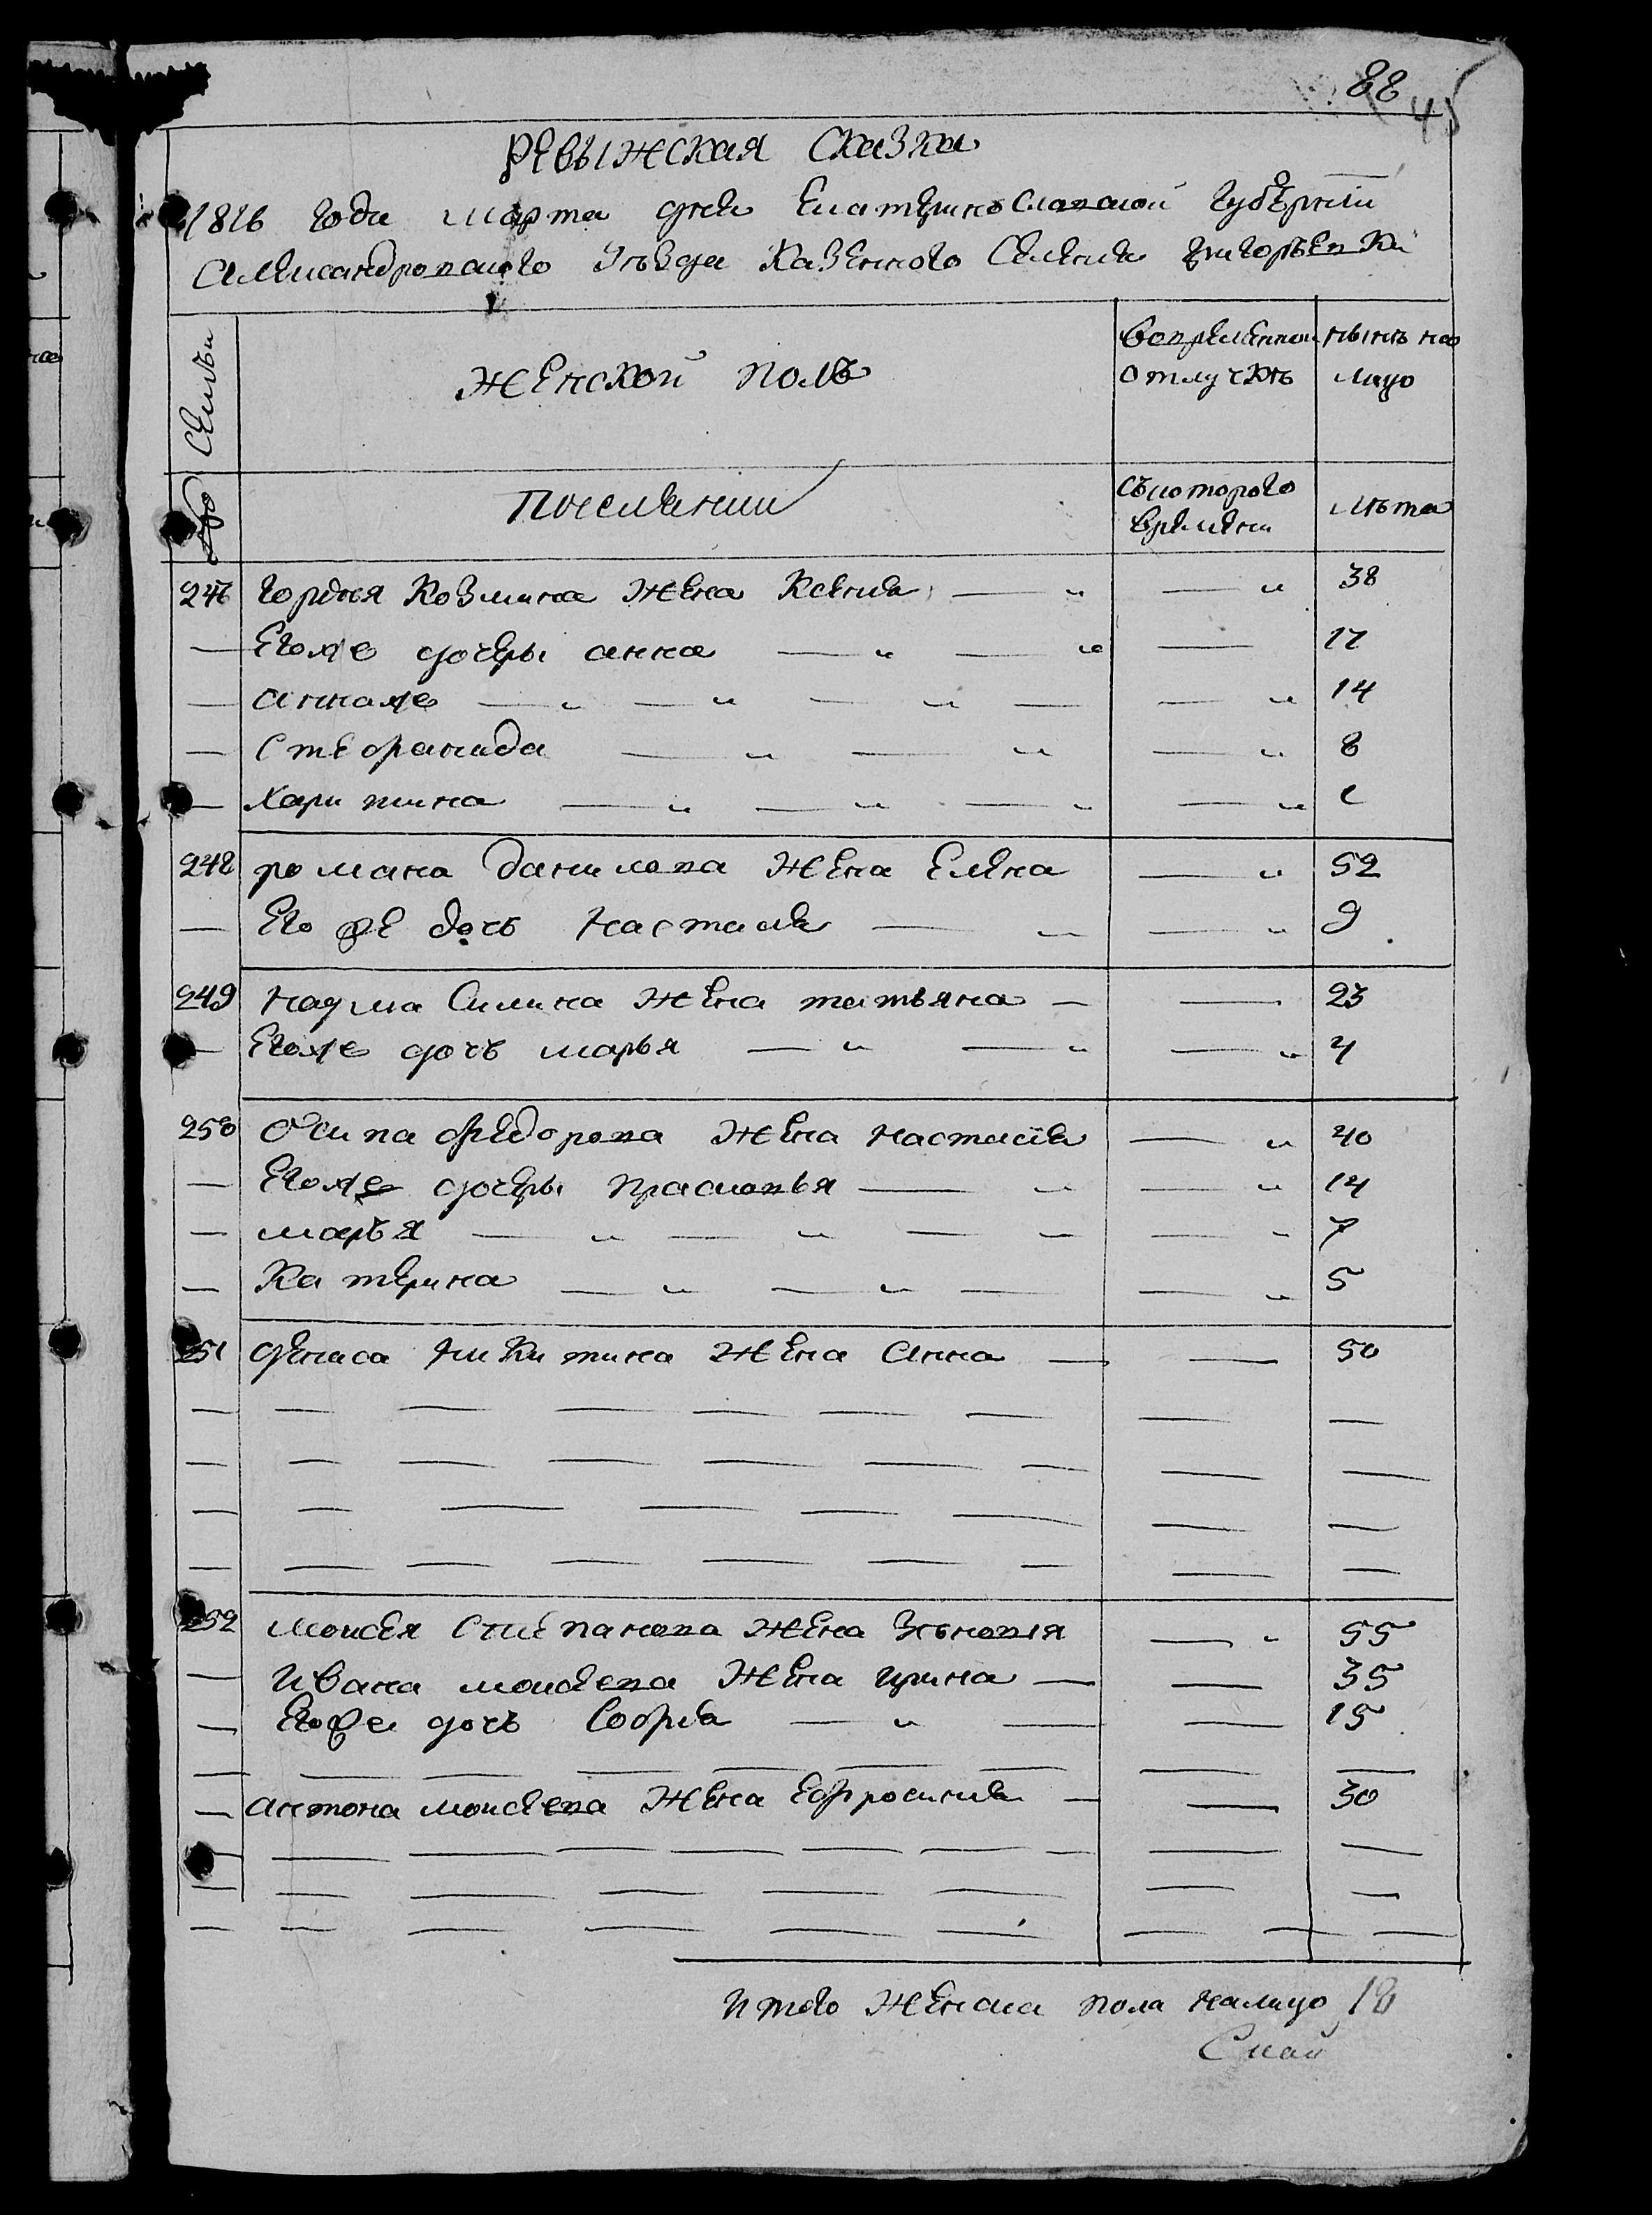 88
45
Ревыжская Сказка
1816 Года марта дня Екатеринославской Губернии
Александровского Уезда Казенного Селения Григорьевки
Семьи
Женской полъ
вовременной отлучкѣ
нынѣ на лицо
Поселянии
Съкоторого времяни
лѣта
247 Гордея Козмина жена Ксения — " — " 38
— Егоже дочеры анна — " — " — 17
— аннаже — " — " — " — — " 14
— Стефанида — " — " — " 8
— Харитина — " — " — " — "
248 романа данилова жена Елена — " 52
— Его же дочь настасия — " — " 9
249 наума Силина жена татьяна — — 23
— Егоже дочъ марья — " — " — " 4
250 Осипа федорова жена настасия — " 40
— Егоже дочеры прасковья — " — " 14
— марья — " — " — " — " 7
— Катерина — " — " — — " 5
251 дениса никитина жена анна — — 50
252 моисея степанова жена Зѣновия — " 55
— ивана моисева жена ирина — — 35
— Егоже дочъ София — " — — 15
— антона моисева жена Ефросиния — — 30
итого женска пола налицо 18